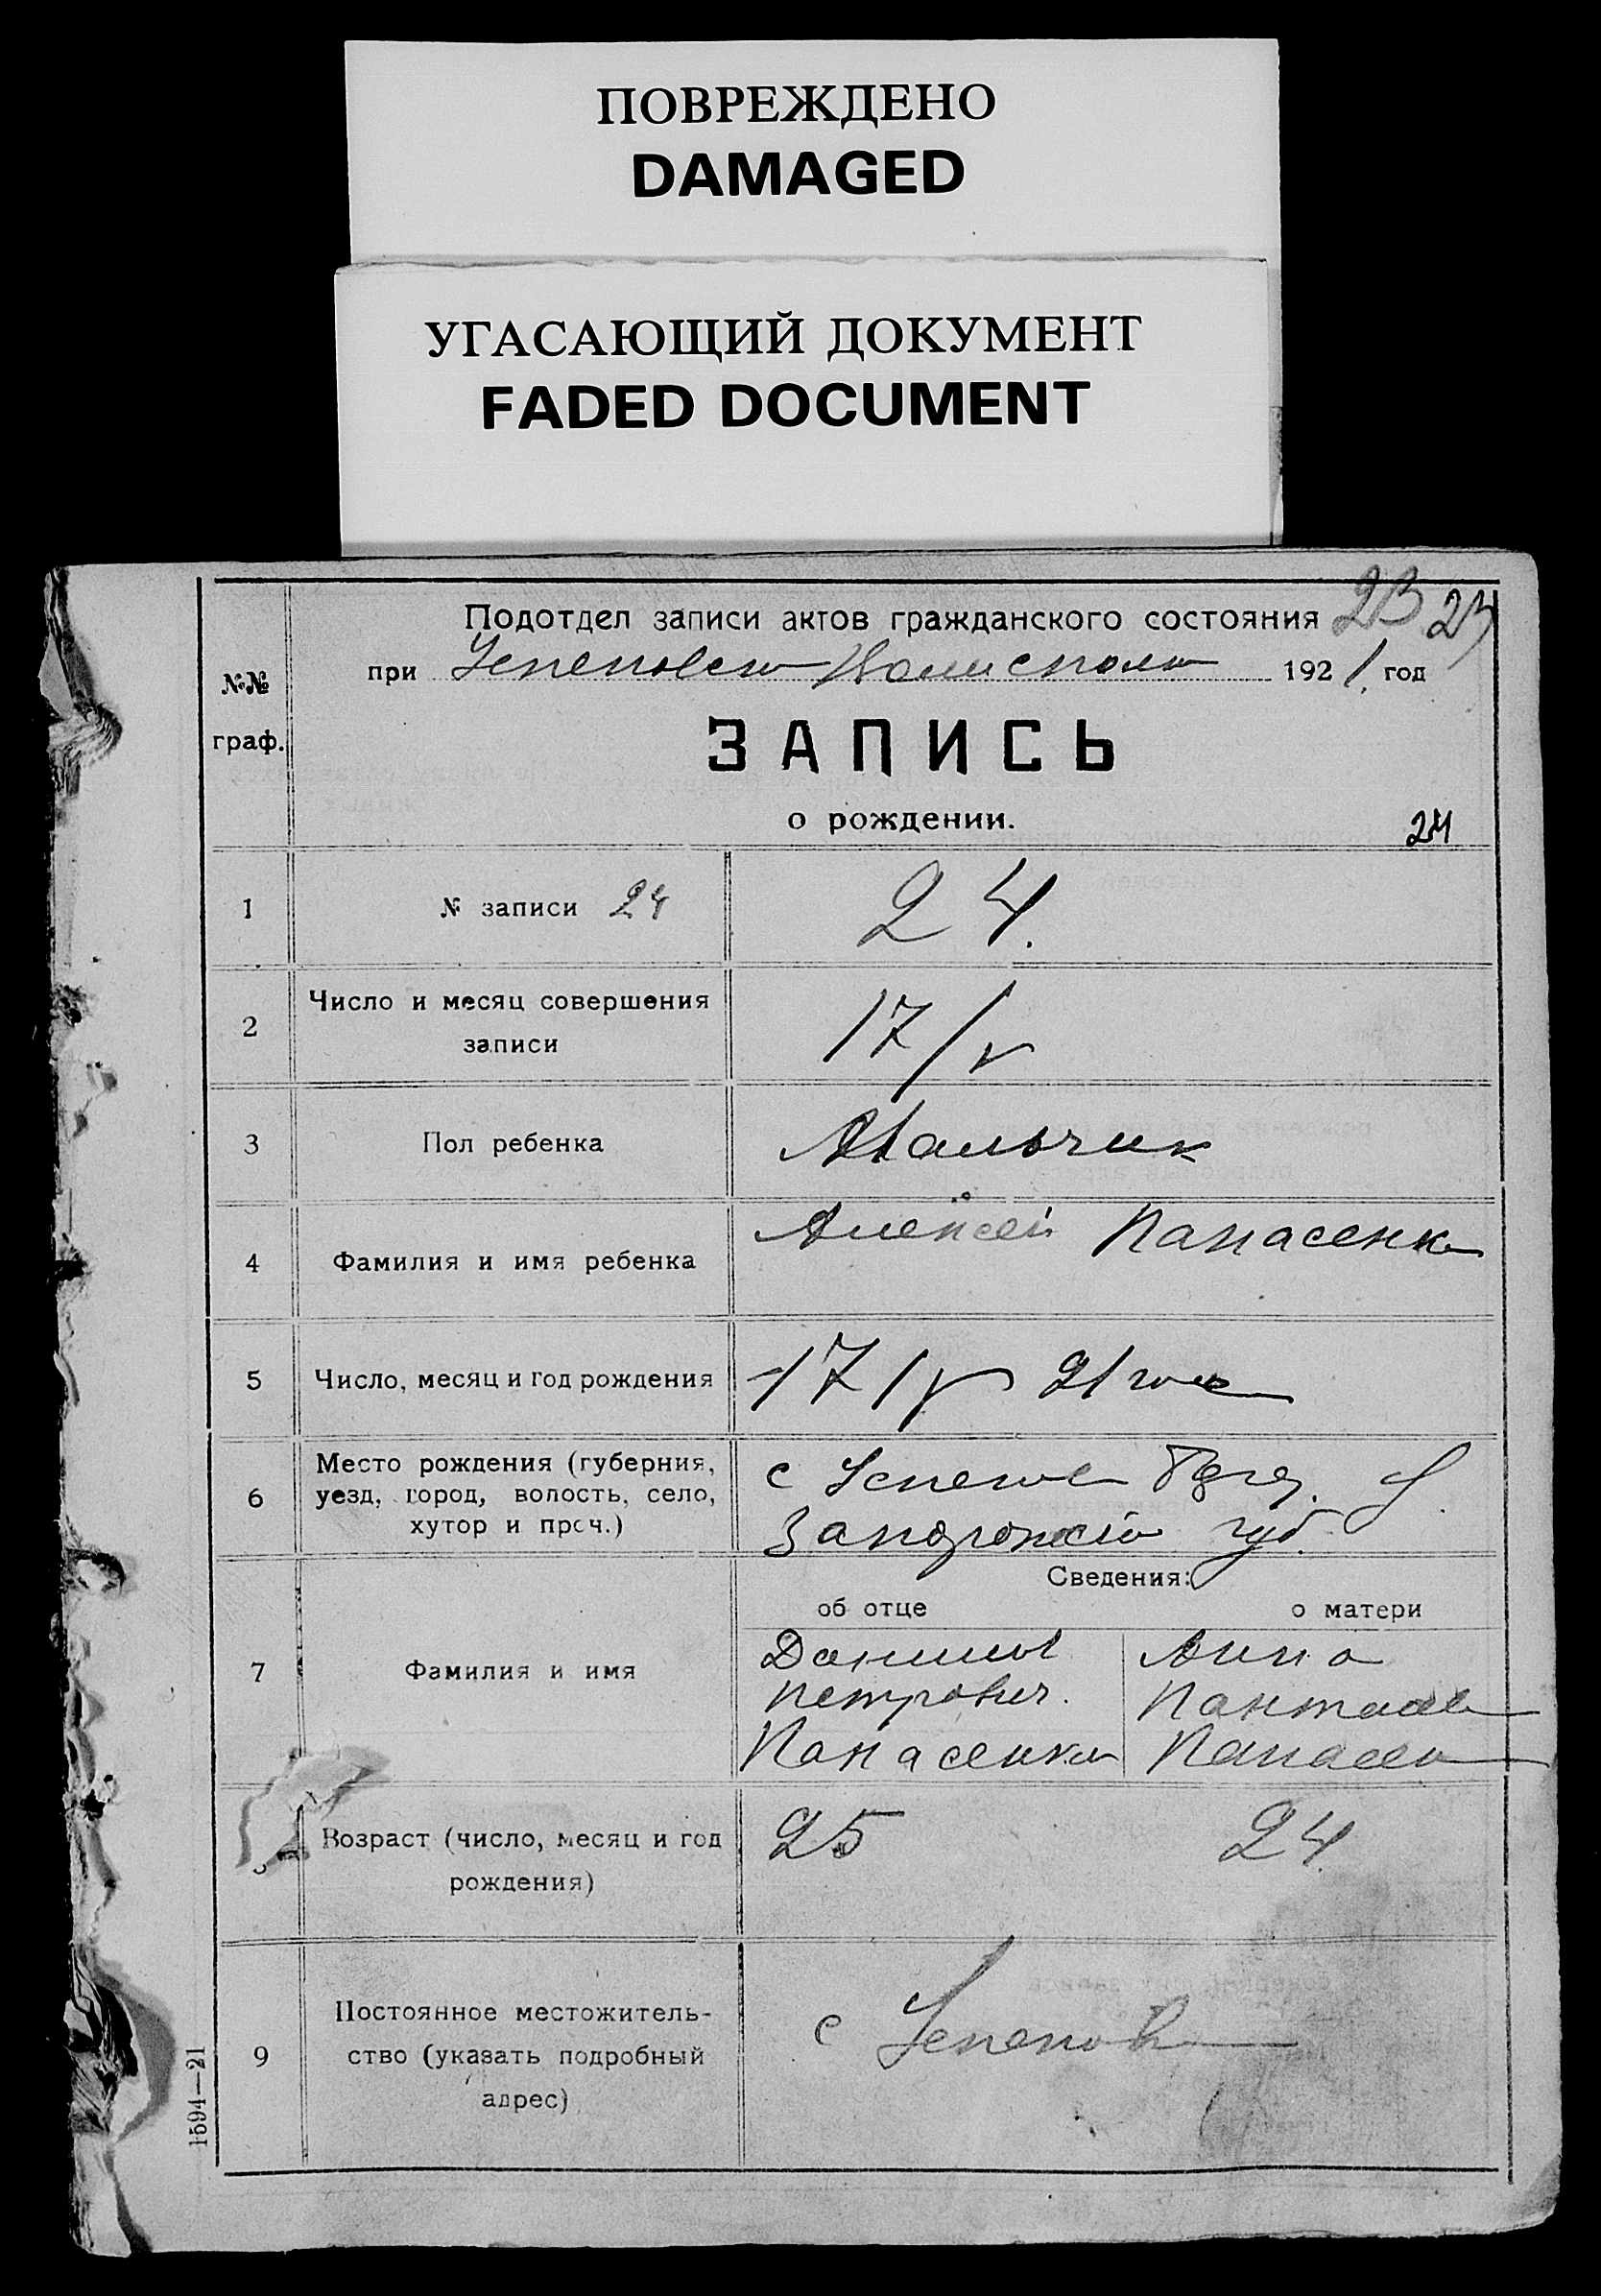 ПОВРЕЖДЕНО
DAMAGED
УГАСАЮЩИЙ ДОКУМЕНТ
FADED DOCUMENT
Подотдел записи актов гражданского состояния 23 23
при 1921 год
№№
граф.
ЗАПИСЬ
о рождении.
24
1 № записи 24 24.
2 Число и месяц совершения
записи
17/V
3 Пол ребенка Мальчик
4 Фамилия и имя ребенка Алексей Панасенко
5 Число, месяц и год рождения 17/V 21 года
6 Место рождения (губерния,
уезд, город, волость, село,
хутор и проч.)
с
губ.
Сведения:
об отце о матери
7 Фамилия и имя
Даниил Анна
Петрович.
Панасенко
Возраст (число, месяц и год
рождения)
25 24
9 Постоянное местожитель-
ство (указать подробный
адрес)
с
1594—21